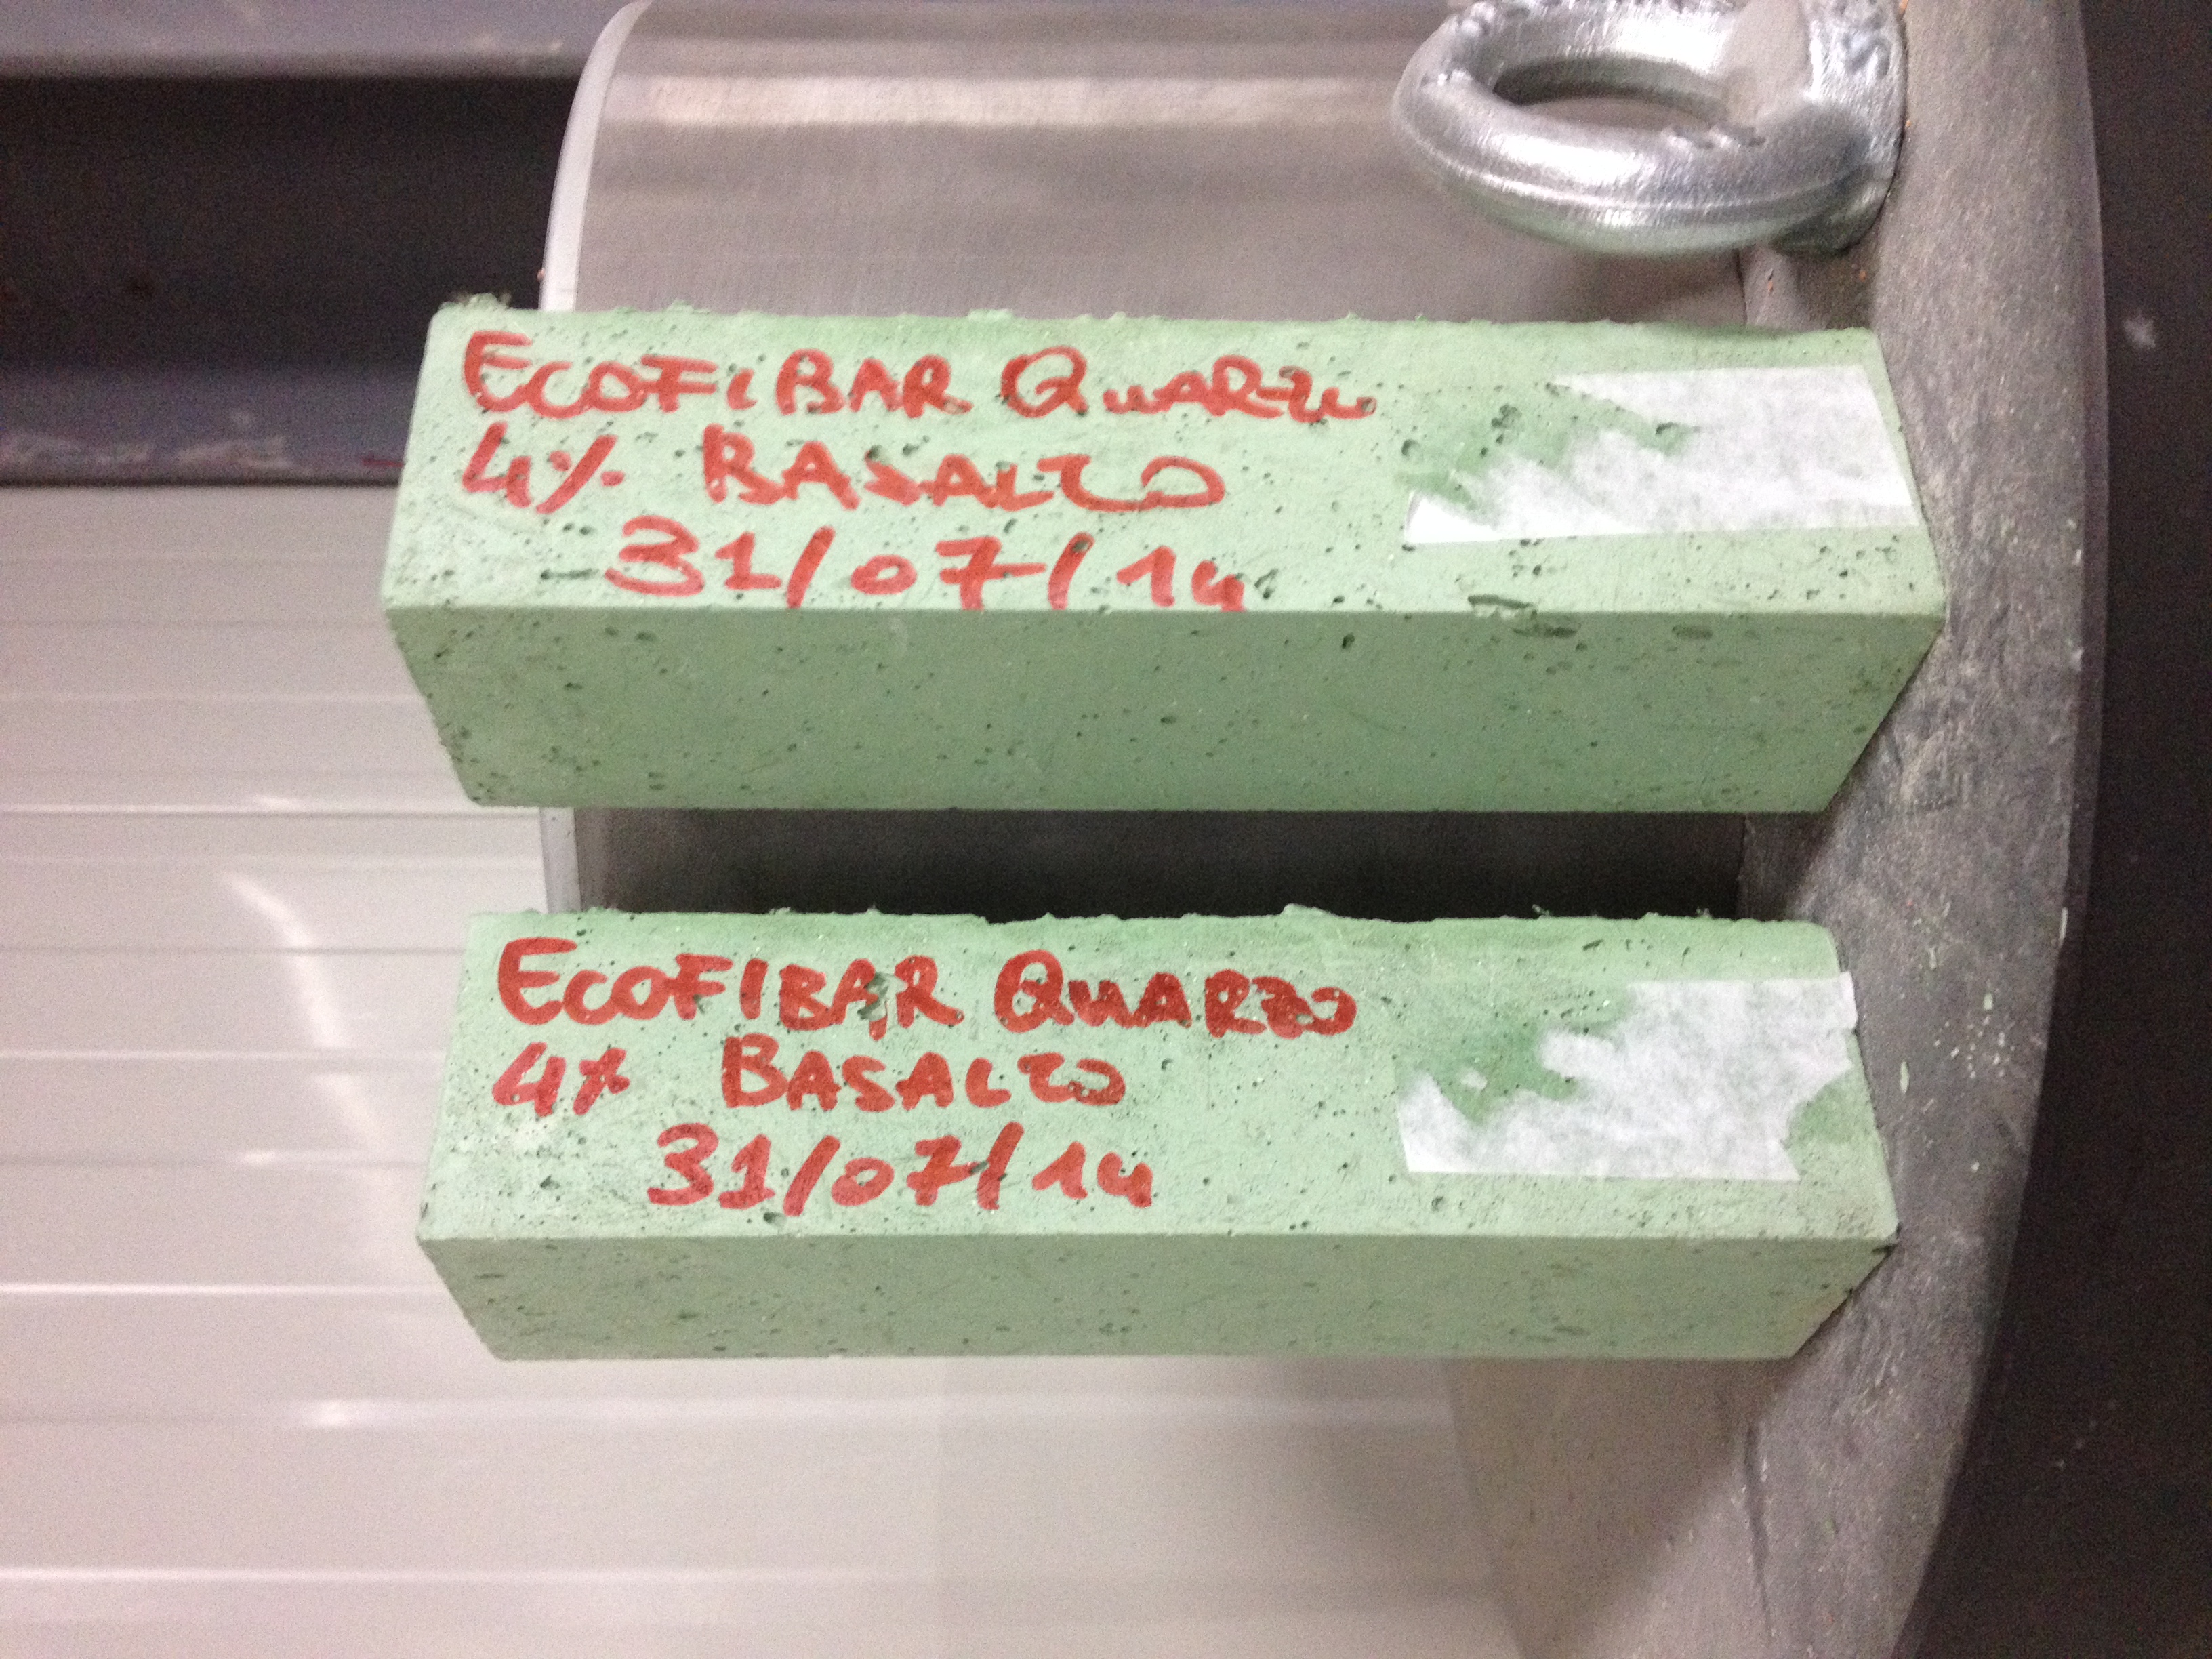 ECOFIBAR QUARZO
4%
BASALTO
31/07/14
ECOFIBAR QUARZO
4%
BASALTO
31/07/14